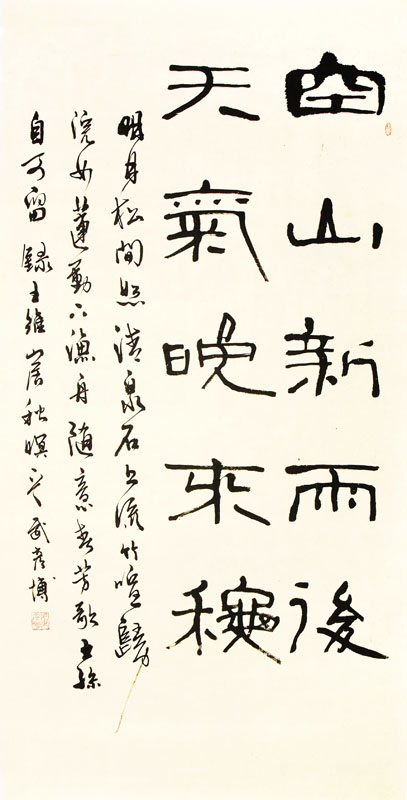 空山新雨後
天氣晚來穐
明月松間照清泉石上流竹喧歸
浣女蓮動下漁舟随意春芳歇王孫
自可留錄王維山居秋暝武彦博